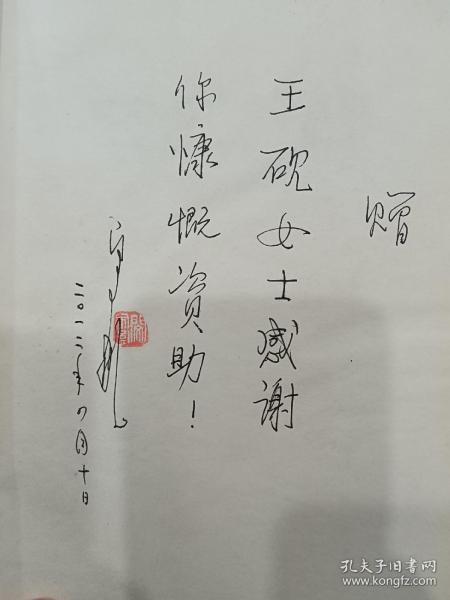 赠
王砚女士感谢
你慷慨资助！
二〇一二年四月十日
孔夫子旧书网
www.kongfz.com